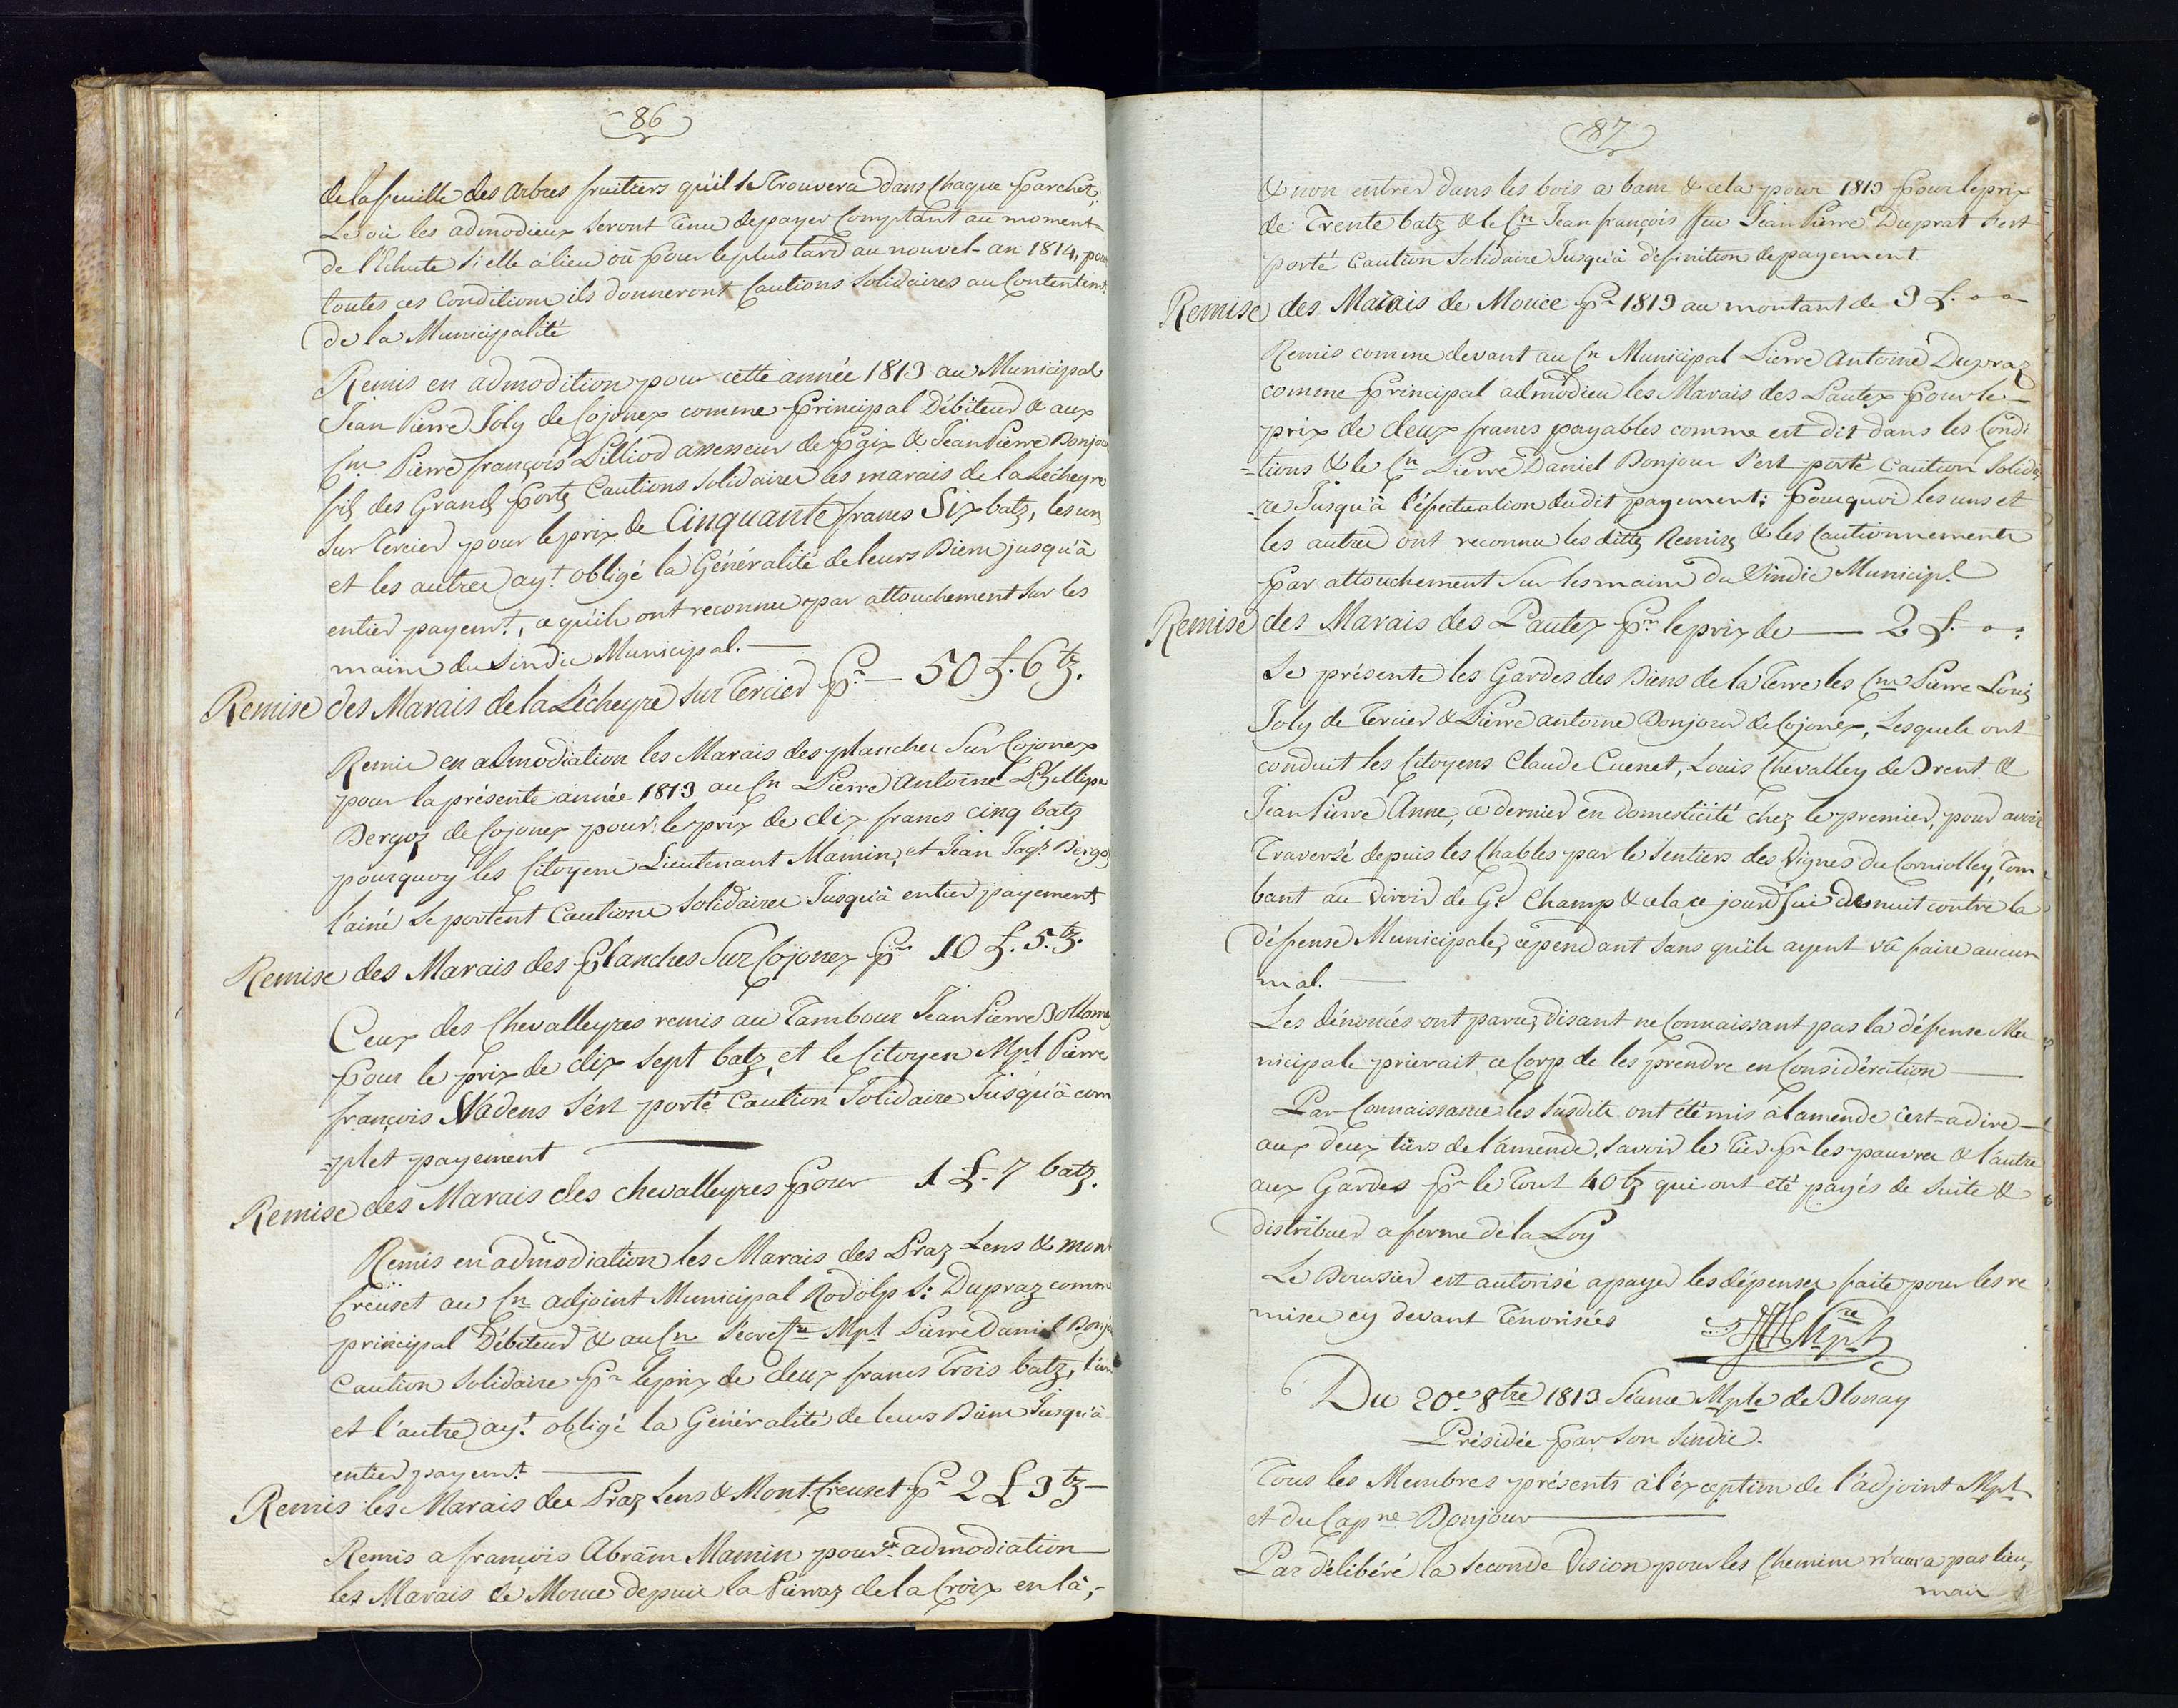 86
de la feuille des Arbres fruitiers qu'il se trouvera dans chaque Parchet,
Le où les admodieux seront tenu de payer Comptant au moment=
de l'Echute si elle a lieu où pour le plus tard au nouvel-an 1814, pour
toutes ces Condition ils donneront Cautions Solidaires au Contentemt.
de la Municipalité
Remis en admodition pour cette année 1813 au Municipal
Jean Pierre Joly de Cojonex comme Principal Débiteur & aux
Cns Pierre françois Pilliod assesseur de Paix & Jean Pierre Bonjour
fils des Grand Portz Cautions Solidaires les marais de la Lécheyre
Sur Tercier pour le prix de Cinquante francs Six batz, les uns
et les autres ayt. obligé la Généralité de leurs Biens jusqu'à
entier payemt., ce qu'ils ont reconnu par attouchement sur les
mains du Sindic Municipal.
Remise des Marais de la Lécheyre sur Tercier Pr. — 50 £. 6 tz.
Remis en admodiation les Marais des planches Sur Cojonex
pour la présente année 1813 au Cn Pierre Antoine Phillipe
Dergoz de Cojonex pour le prix de dix francs cinq batz
pourquoy les Citoyens Lieutenant Mamin, et Jean Jaqs Dergoz
l'ainé se portent Cautions Solidaires Jusqu'à entier payement
Remise des Marais des Planches Sur Cojonex Pr 10 £. 5. tz.
Ceux des Chevalleyres remis au Tambour Jean Pierre Bollomey
Pour le prix de dix sept batz, et le Citoyen Mpl Pierre
françois Nadens s'est porté Caution Solidaire Jusqu'à com
=plet payement
Remise des Marais des chevalleyres Pour 1 £. 7 batz.
Remis en admodiation les Marais des Praz Lens & Mont
Creuset au Cn adjoint Municipal Rodolp S: Dupraz comme
principal Débiteur & au Cn Secretre Mpl Pierre Daniel Bonjour
Caution Solidaire Pr le prix de deux francs Trois batz, l'un
et l'autre ayt. obligé la Généralité de leurs Biens Jusqu'à
entier payemt.
Remis les Marais des Praz Lens & Mont-Creuset Pr 2 £ 3 tz —
Remis a françois Abram Mamin pour en admodiation
les Marais de Mouce depuis la Pierraz de la Croix en là,-
87
& non entrer dans les bois a bam & cela pour 1813 Pour le prix
de Trente batz & le Cn Jean françois ffeu Jean Pierre Duprat s'est
porté Caution Solidaire Jusqu'à définition de payement
Remise des Marais de Mouce Pr 1813 au montant de 3 £. ..
Remis comme devant au Cn Municipal Pierre Antoine Dupraz
comme Principal admodieu les Marais des Pautex Pour le
prix de deux francs payables comme est dit dans les Condi
=tions & le Cn Pierre Daniel Bonjour s'est porté Caution Solidai
=re Jusqu'à l'éfectuation du dit payement; Pourquoi les uns et
les autres ont reconnu les dittes Remises & les Cautionnements
Par attouchement Sur les mains du Sindic Municipl.
Remise des Marais des Pautex Pr. le prix de — 2 £. ..
Se présente les Gardes des Biens de la Terre les Cns Pierre Louis
Joly de Tercier & Pierre Antoine Bonjour de Cojonex, Lesquels ont
conduit les Citoyens Claude Cuenet, Louis Chevalley de Brent &
Jean Pierre Anne, ce dernier en domesticité chez le premier, pour avoir
Traversé depuis les Chables par le Sentiers des Vignes du Corniolley, Tom
bant au Viroir de Gd. Champ & cela ce jourd'hui de nuit contre la
défense Municipale, cépendant sans qu'ils ayent vû faire aucun
mal.
Les dénoncés ont paru, disant ne Connaissant pas la défense Mu
nicipale prierait ce Corp de les prendre en Considération
Par Connaissance les susdits ont été mis à l'amende c'est-adire
aux deux tiers de l'amende, savoir le tiers Pr les pauvres & l'autre
aux Gardes Pr le Tout 40 tz qui ont été payés de suite &
distribués a forme de la Loy
Le Boursier est autorisé a payer les dépenses faite pour les re
mises cy devant Ténorisées
Du 20e. 8tre 1813 Séance Mple de Blonay
Présidée Par Son Sindic.
Tous les Membres présents à l'éxception de l'adjoint Mpl
et du Capne Bonjour
Par délibéré la seconde Vision pour les Chemins n'aura pas lieu,
mais